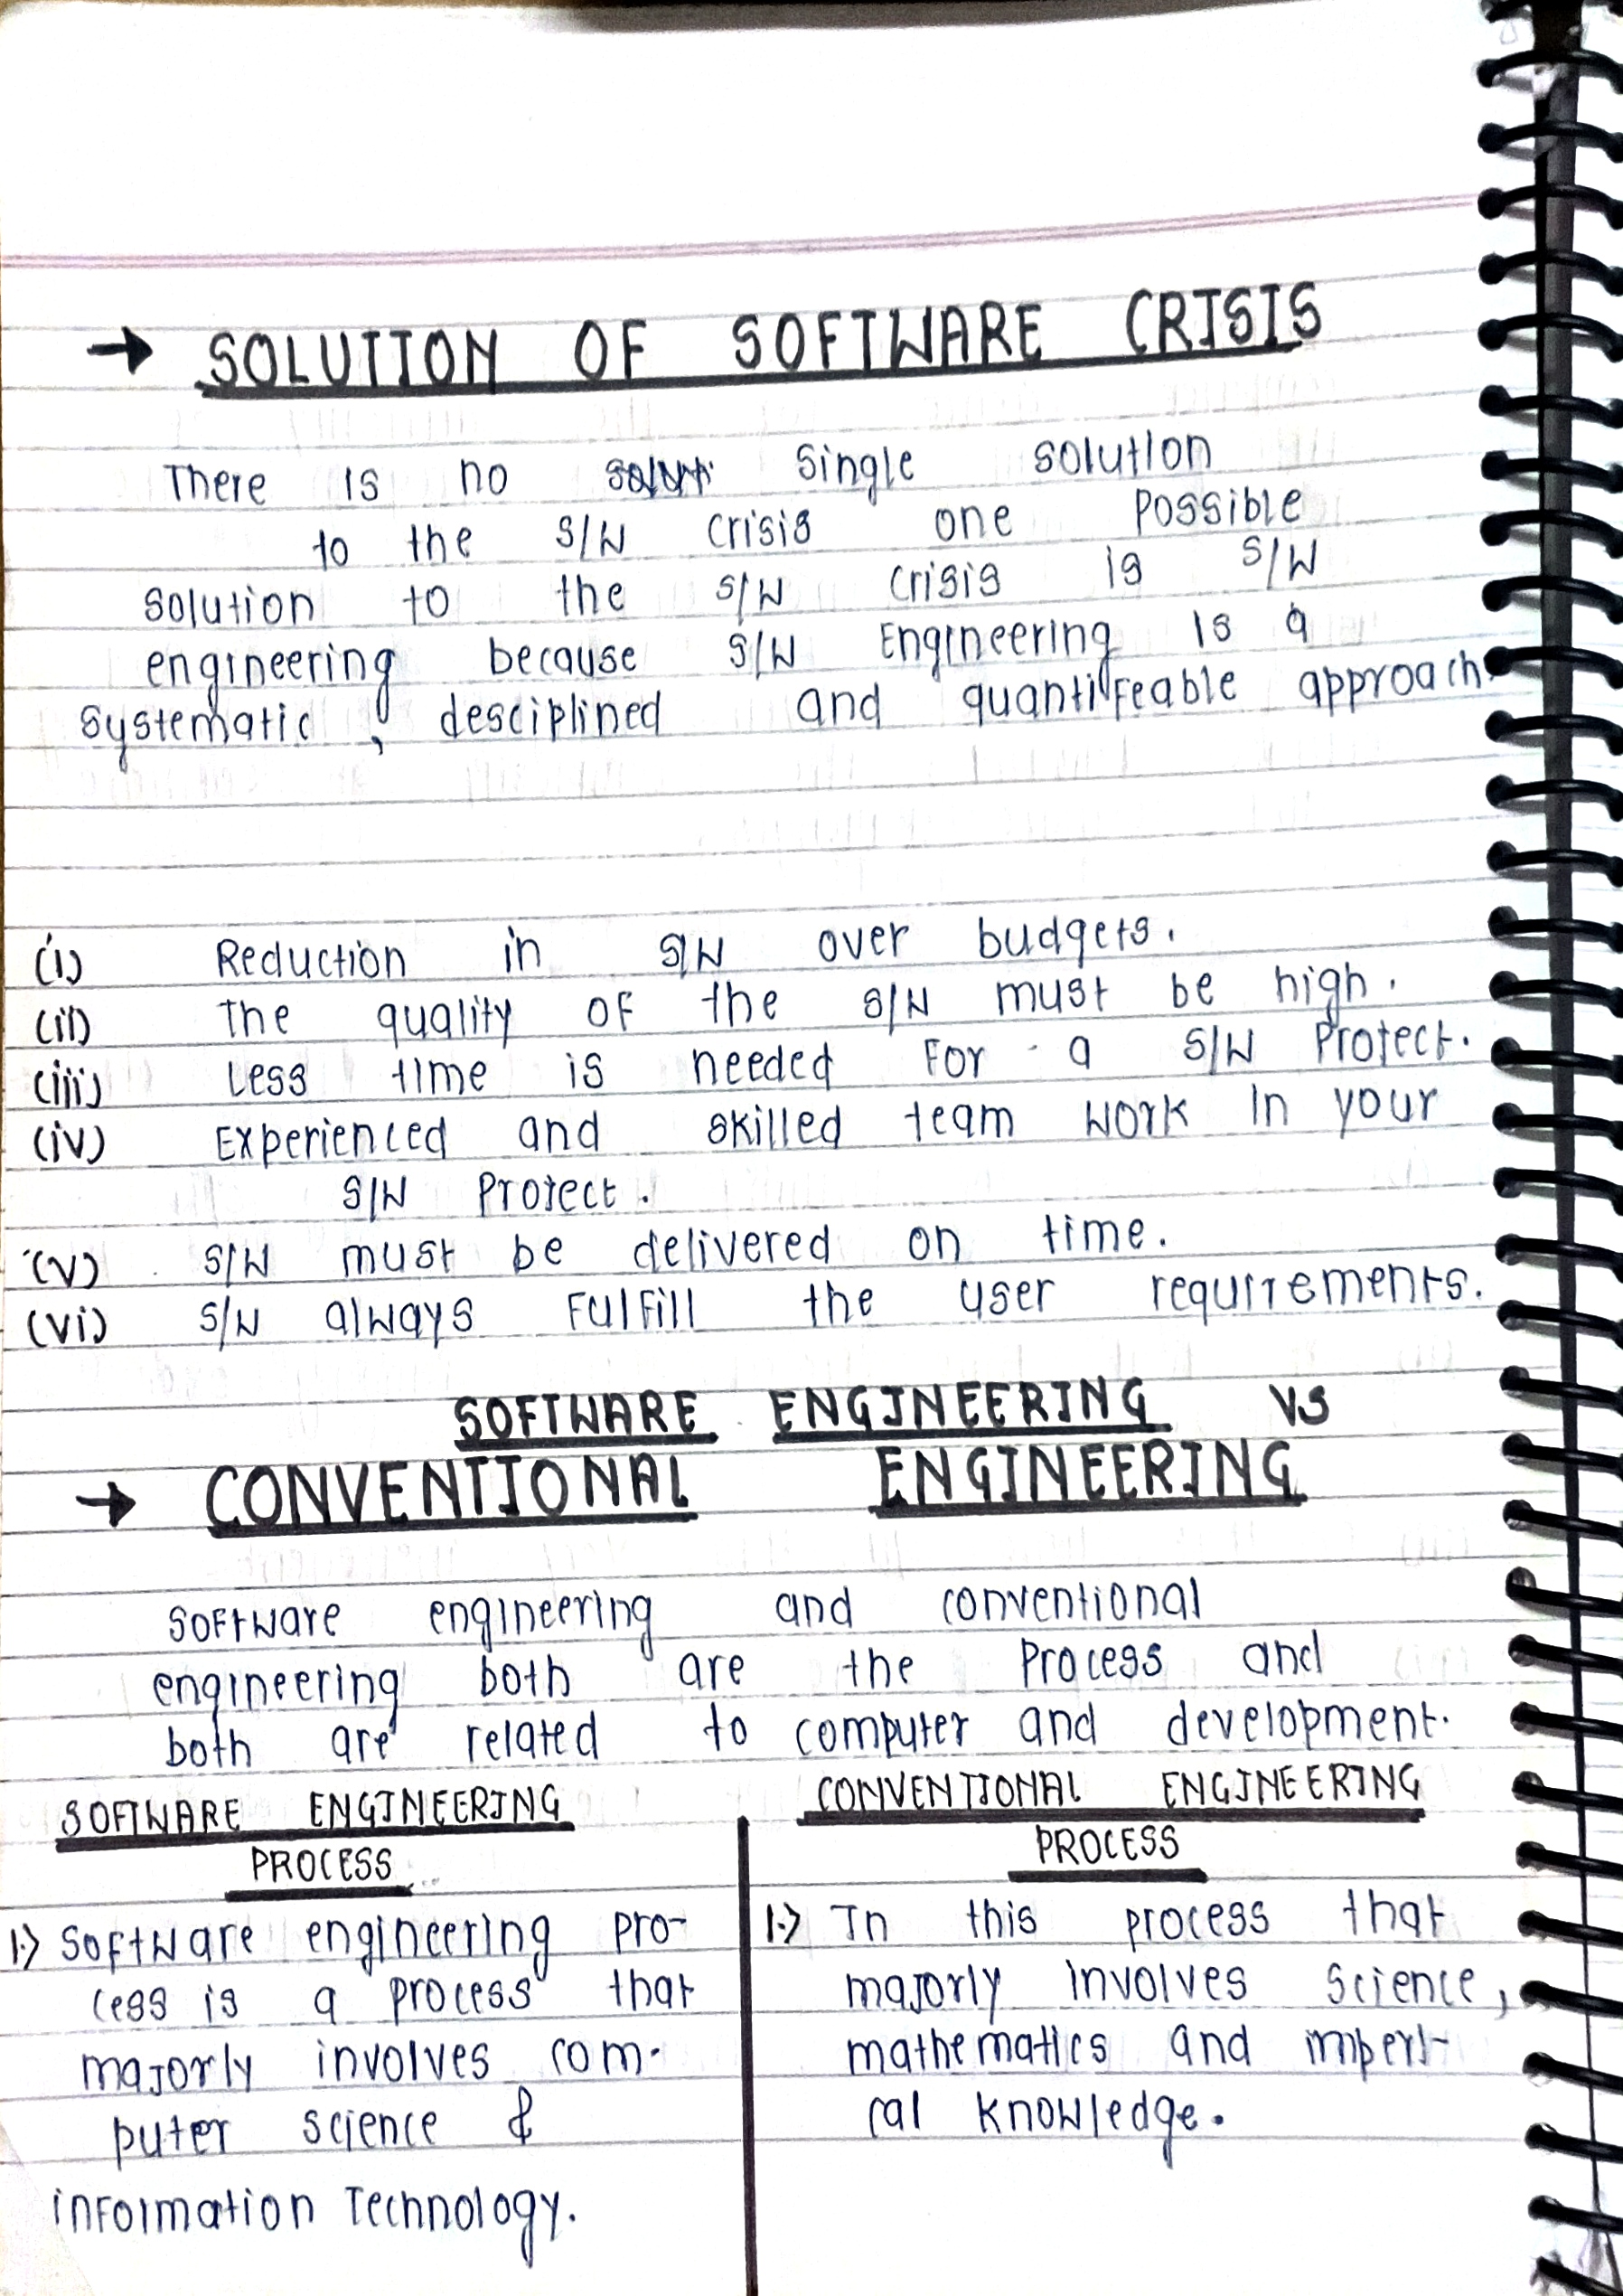 → SOLUTION OF SOFTWARE CRISIS
There is no single solution
to the S/W crisis one possible
solution to the S/W crisis is S/W
engineering because S/W Engineering is a
systematic, desciplined and quantifeable approach.
(i) Reduction in S/W over budgets.
(ii) The quality of the S/W must be high.
(iii) Less time is needed for a S/W Project.
(iv) Experienced and skilled team work in your
S/W Project.
(v) S/W must be delivered on time.
(vi) S/W always fulfill the user requirements.
SOFTWARE ENGINEERING VS
→ CONVENTIONAL ENGINEERING
Software engineering and conventional
engineering both are the process and
both are related to computer and development.
SOFTWARE ENGINEERING
PROCESS
1.) Software engineering pro-
cess is a process that
majorly involves com-
puter science &
information Technology.
CONVENTIONAL ENGINEERING
PROCESS
1.) In this process that
majorly involves science,
mathematics and imperi-
cal knowledge.